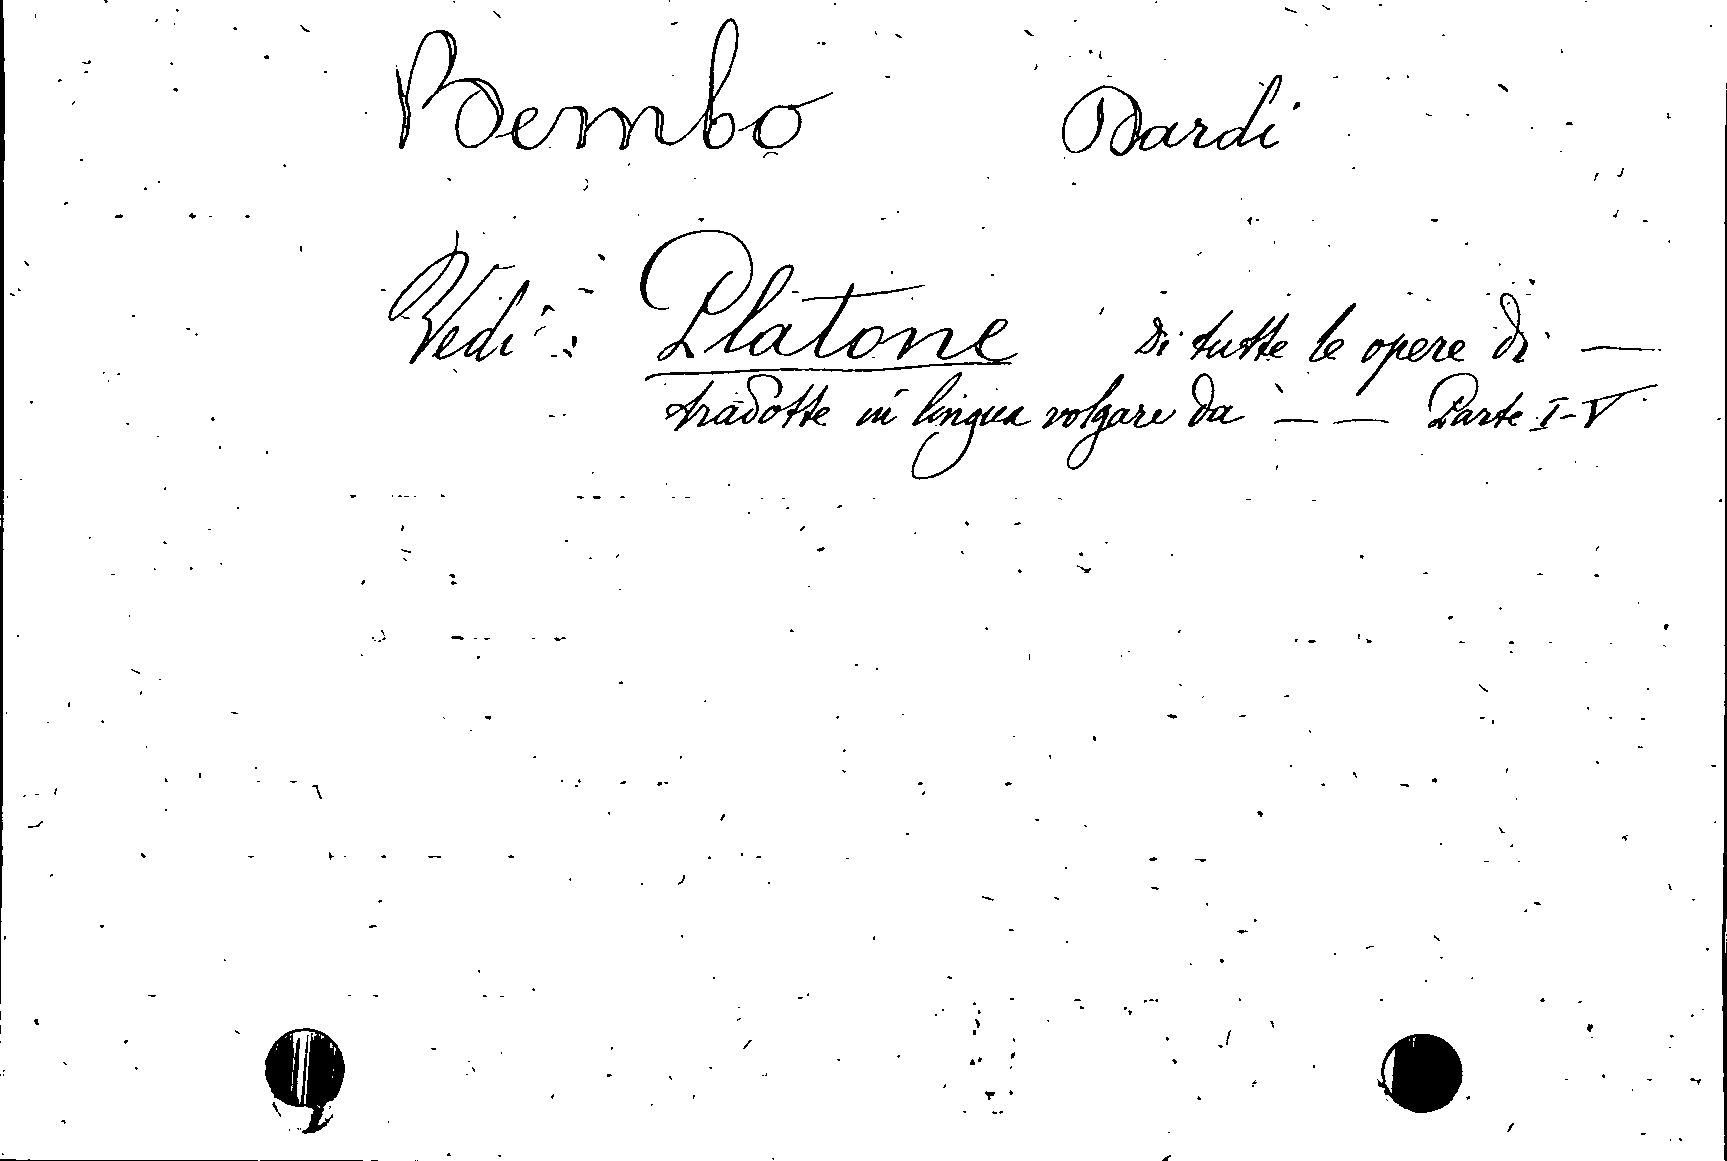 Bembo Dardi
Vedi: Platone Di tutte le opere di —
tradotte in lingua volgare da — — Parte I-V